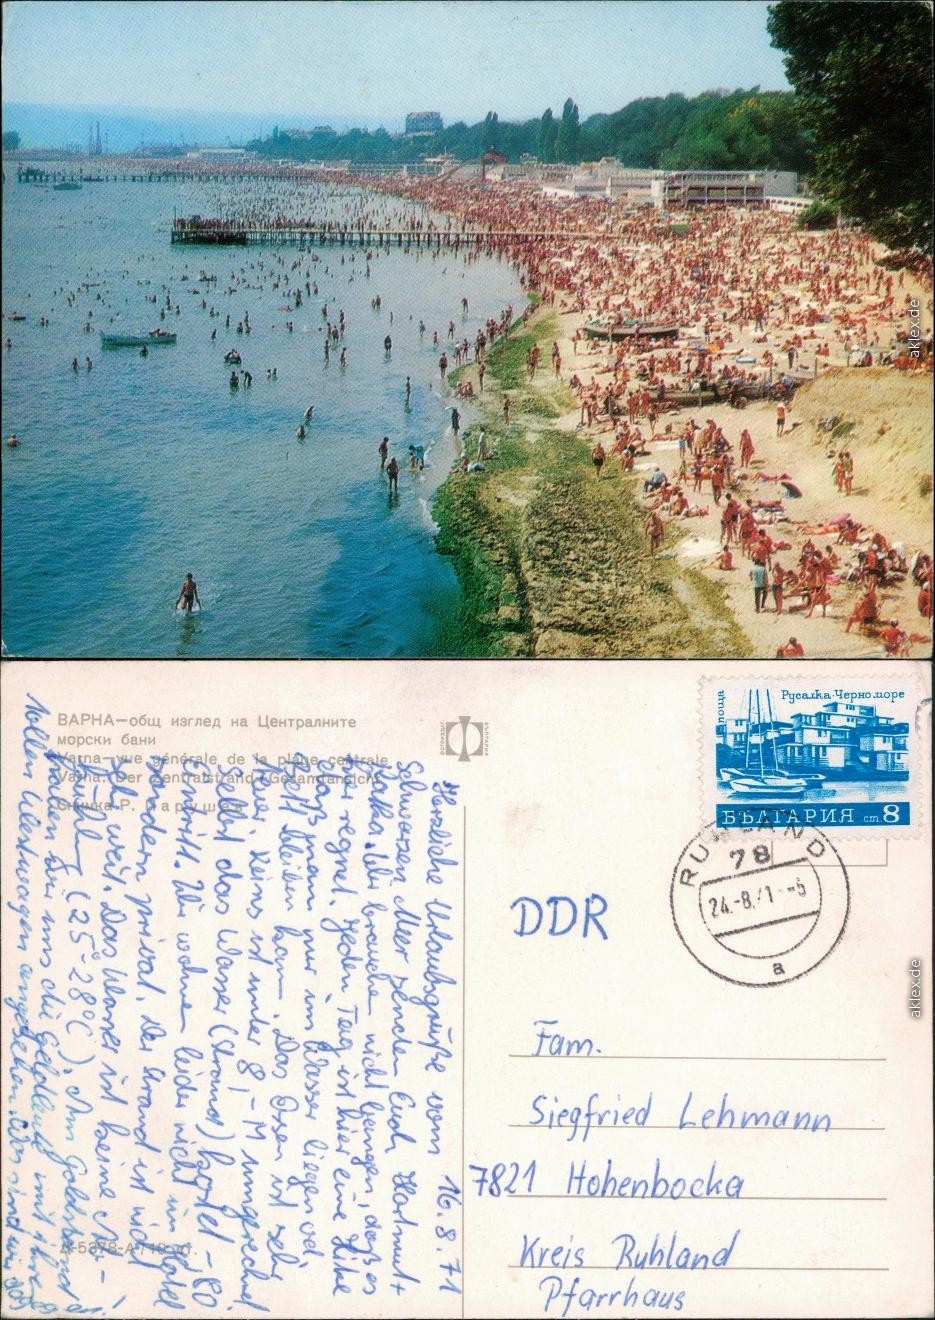 aklex.de
ВАРНА—общ изглед на Централните
морски бани
Varna—vue générale de la plage centrale
Varna. Der Zentralstrand (Gesamtansicht)
Снимка Р. Парушев
поща
Русалка·Черно море
БЪЛГАРИЯ ст 8
RUHLAND
78
24.-8.71--5
a
DDR
Fam.
Siegfried Lehmann
7821 Hohenbocka
Kreis Ruhland
Pfarrhaus
16.8.71
Herzliche Urlaubsgrüße vom
Schwarzen Meer senden Euch Hartmut +
Wir brauchen nicht bangen, daß es
hier regnet. Jeden Tag ist hier eine Hitze
daß man nur im Wasser liegen od.
Zelt bleiben kann. Das Essen ist sehr
teuer. Keins ist unter 8,- M
Selbst das Wasser (Strand) kostet -,80
Eintritt. Wir wohnen leider nicht im Hotel
sondern privat. Der Strand ist nicht
weit. Das Wasser ist keine
(25°-28°C). Am Goldstrand
wollten wir uns die Geldleute mit ihren
tollen Westwagen angesehen. Wir sind
aklex.de